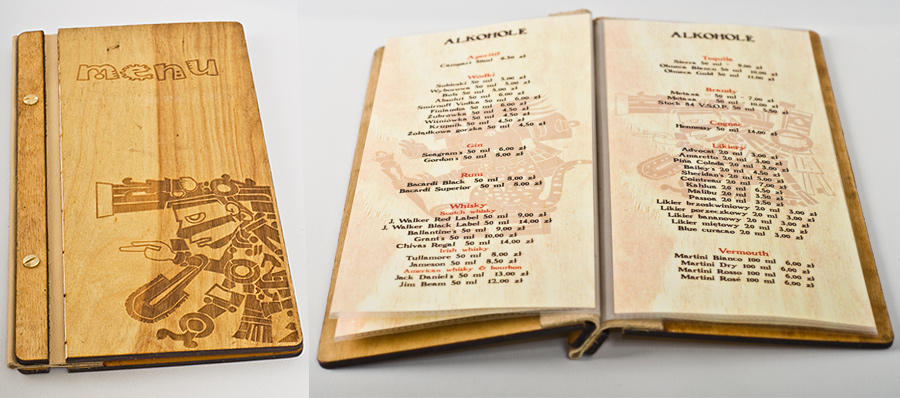 menu
ALKOHOLE
Aperitif
Campari 50ml 6,50 zł
Wódki
Sobieski 50 ml 5,00 zł
Wyborowa 50 ml 5,00 zł
Bols 50 ml 5,00 zł
Absolut 50 ml 6,00 zł
Smirnoff Vodka 50 ml 6,00 zł
Finlandia 50 ml 6,00 zł
Żubrówka 50 ml 4,50 zł
Wiśniówka 50 ml 4,50 zł
Krupnik 50 ml 4,50 zł
Żołądkowa gorzka 50 ml 4,50 zł
Gin
Seagram's 50 ml 6,00 zł
Gordon's 50 ml 8,00 zł
Rum
Bacardi Black 50 ml 8,00 zł
Bacardi Superior 50 ml 8,00 zł
Whisky
Scotch whisky
J. Walker Red Label 50 ml 9,00 zł
J. Walker Black Label 50 ml 14,00 zł
Ballantine's 50 ml 9,00 zł
Grant's 50 ml 10,00 zł
Chivas Regal 50 ml 14,00 zł
Irish whisky
Tullamore 50 ml 8,00 zł
Jameson 50 ml 8,50 zł
American whisky & bourbon
Jack Daniel's 50 ml 13,00 zł
Jim Beam 50 ml 12,00 zł
ALKOHOLE
Tequila
Sierra 50 ml - 9,00 zł
Olmeca Blanco 50 ml 10,00 zł
Olmeca Gold 50 ml 11,00 zł
Brandy
Metaxa 50 ml - 7,00 zł
Metaxa 50 ml - 10,00 zł
Stock 84 V.S.O.P. 50 ml 5,50 zł
Cognac
Hennessy 50 ml 14,00 zł
Likiery
Advocat 20 ml 3,00 zł
Amaretto 20 ml 3,00 zł
Piña Colada 20 ml 3,00 zł
Bailey's 20 ml 4,50 zł
Sheridan's 20 ml 5,00 zł
Cointreau 20 ml 7,00 zł
Kahlua 20 ml 6,50 zł
Malibu 20 ml 3,50 zł
Passoa 20 ml 3,50 zł
Likier brzoskwiniowy 20 ml 3,00 zł
Likier porzeczkowy 20 ml 3,00 zł
Likier bananowy 20 ml 3,00 zł
Likier miętowy 20 ml 3,00 zł
Blue curacao 20 ml 3,00 zł
Vermouth
Martini Bianco 100 ml 6,00 zł
Martini Dry 100 ml 6,00 zł
Martini Rosso 100 ml 6,00 zł
Martini Rosé 100 ml 6,00 zł